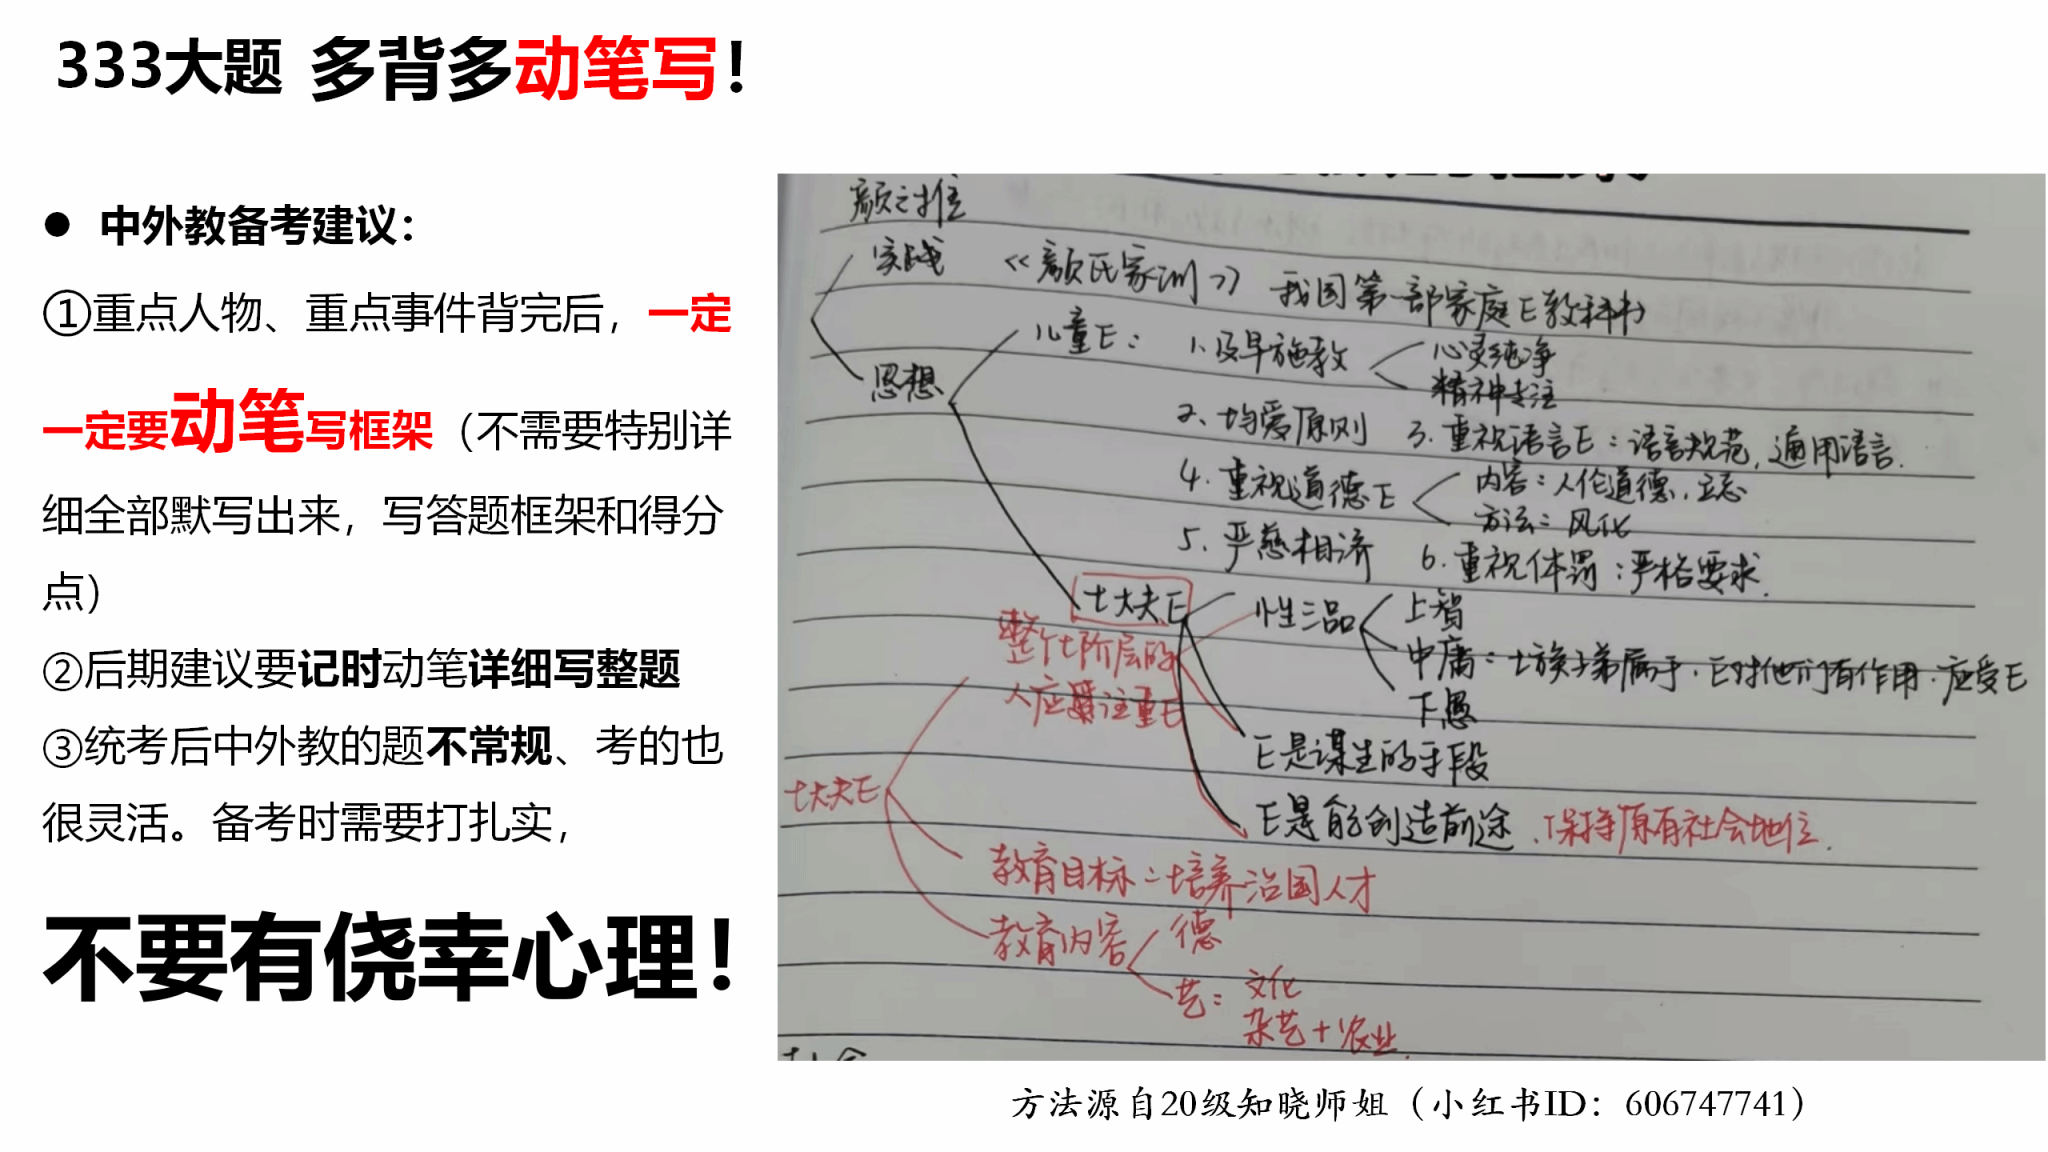 333大题 多背多动笔写！
● 中外教备考建议：
①重点人物、重点事件背完后，一定
一定要动笔写框架（不需要特别详
细全部默写出来，写答题框架和得分
点）
②后期建议要记时动笔详细写整题
③统考后中外教的题不常规、考的也
很灵活。备考时需要打扎实，
不要有侥幸心理！
颜之推
实践 《颜氏家训》 我国第一部家庭E教科书
思想
儿童E： 1.及早施教
心灵纯净
精神专注
2、均爱原则 3.重视语言E：语言规范，通用语言.
4.重视道德E
内容：人伦道德，立志
方法：风化
5.严慈相济 6.重视体罚：严格要求.
士大夫E
整个士阶层的
人应注重E
性三品
上智
中庸：士族子弟属于，E对他们有作用，应受E
下愚
E是谋生的手段
E是能创造前途.保持原有社会地位.
士大夫E
教育目标：培养治国人才
教育内容
德
艺：文化
杂艺+农业.
方法源自20级知晓师姐（小红书ID：606747741）